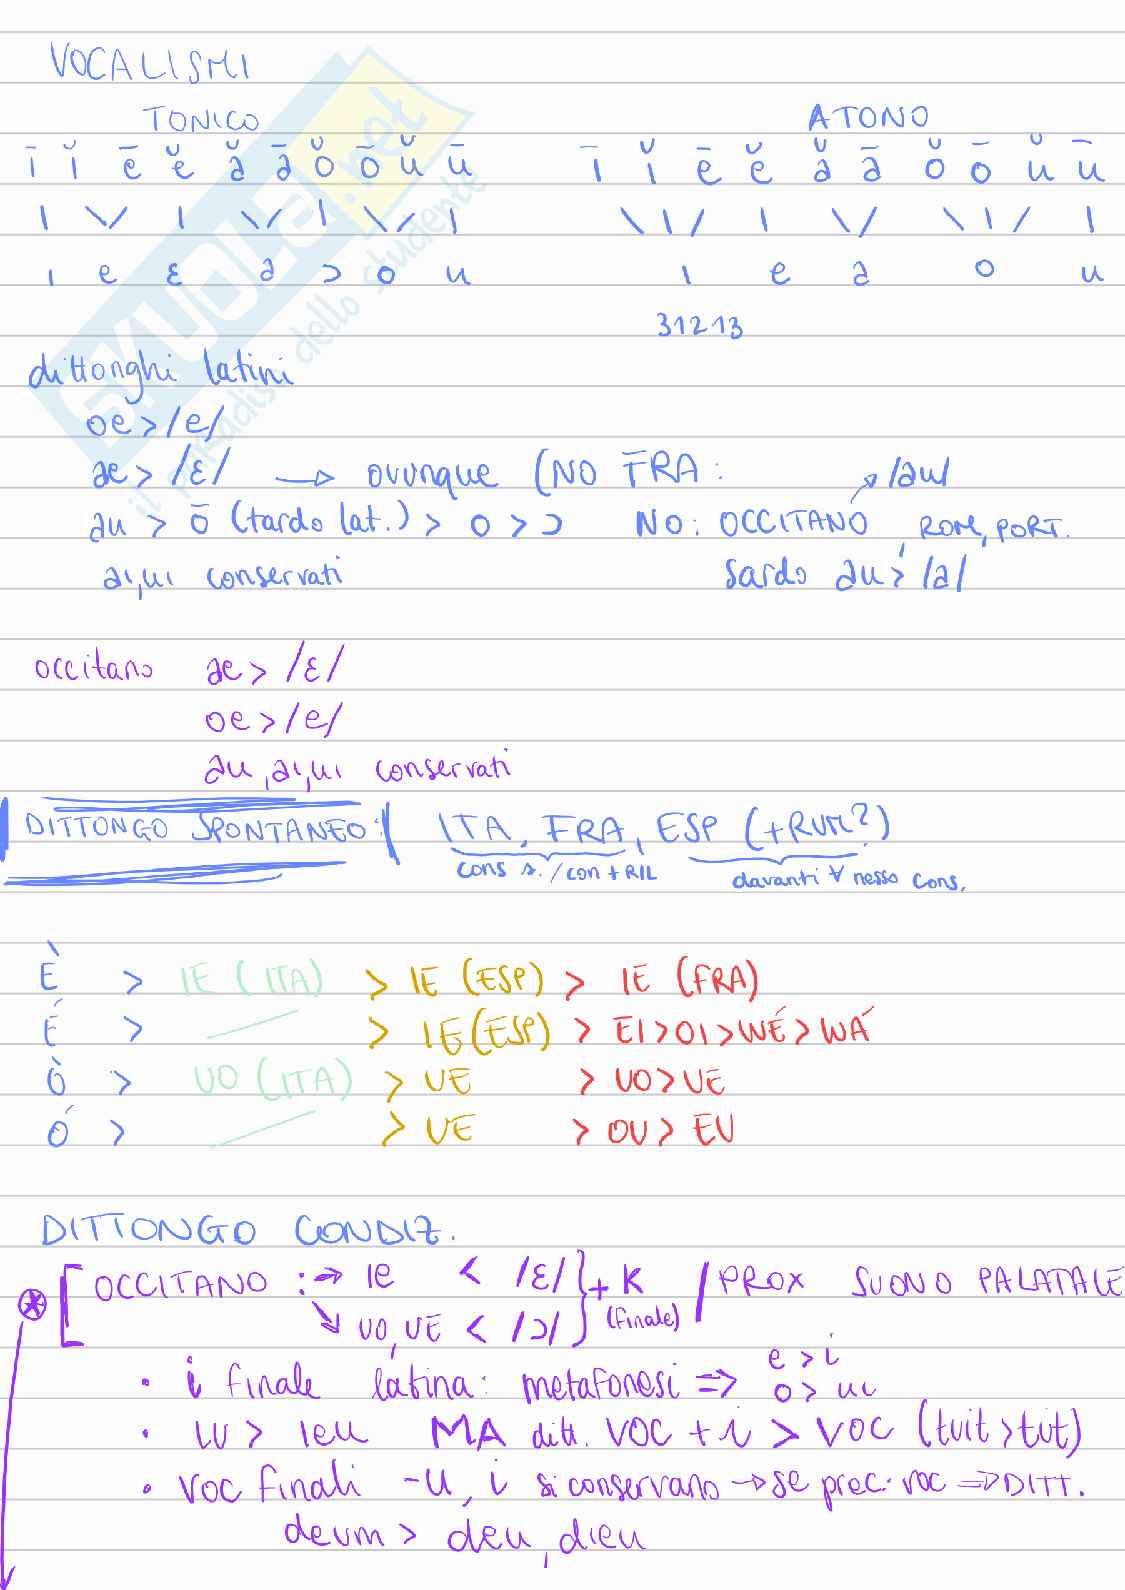 VOCALISMI
TONICO ATONO
ī ĭ ē ĕ ă ā ŏ ō ŭ ū ī ĭ ē ĕ ă ā ŏ ō ŭ ū
| \/ | \/ | \/ | \|/ | \/ \|/ |
i e ɛ a ɔ o u i e a o u
31213
dittonghi latini
oe > /e/
ae > /ɛ/ → ovunque (NO FRA:
au > ō (tardo lat.) > o > ɔ NO: OCCITANO ↗ /au/, ROM, PORT.
ai, ui conservati sardo au > /a/
occitano ae > /ɛ/
oe > /e/
au, ai, ui conservati
DITTONGO SPONTANEO: ITA, FRA, ESP (+RUM?)
cons s. / con + RIL davanti ∀ nesso cons.
È > IE (ITA) > IE (ESP) > IE (FRA)
É > — > IE (ESP) > EI > OI > WÉ > WÁ
Ò > UO (ITA) > UE > UO > UE
Ó > — > UE > OU > EU
DITTONGO CONDIZ.
[OCCITANO: → ie < /ɛ/ } + K / PROX SUONO PALATALE
↘ UO, UE < /ɔ/ } (finale)
• i finale latina: metafonesi ⇒ e > i
o > ui
• iu > ieu MA ditt. VOC + i > VOC (tuit > tut)
• voc finali -u, i si conservano → se prec. voc ⇒ DITT.
deum > deu, dieu
SKUOLA.net
il paradiso dello studente